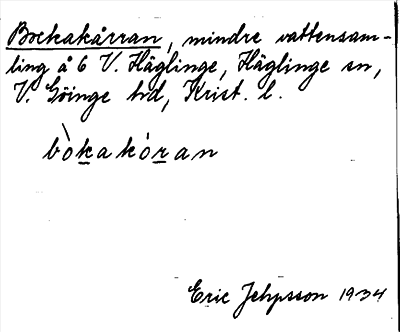 Bockakärran, mindre vattensam-
ling å 6 V. Häglinge, Häglinge sn,
V. Göinge hd, Krist. l.
bòkakóran
Eric Jehpsson 1934